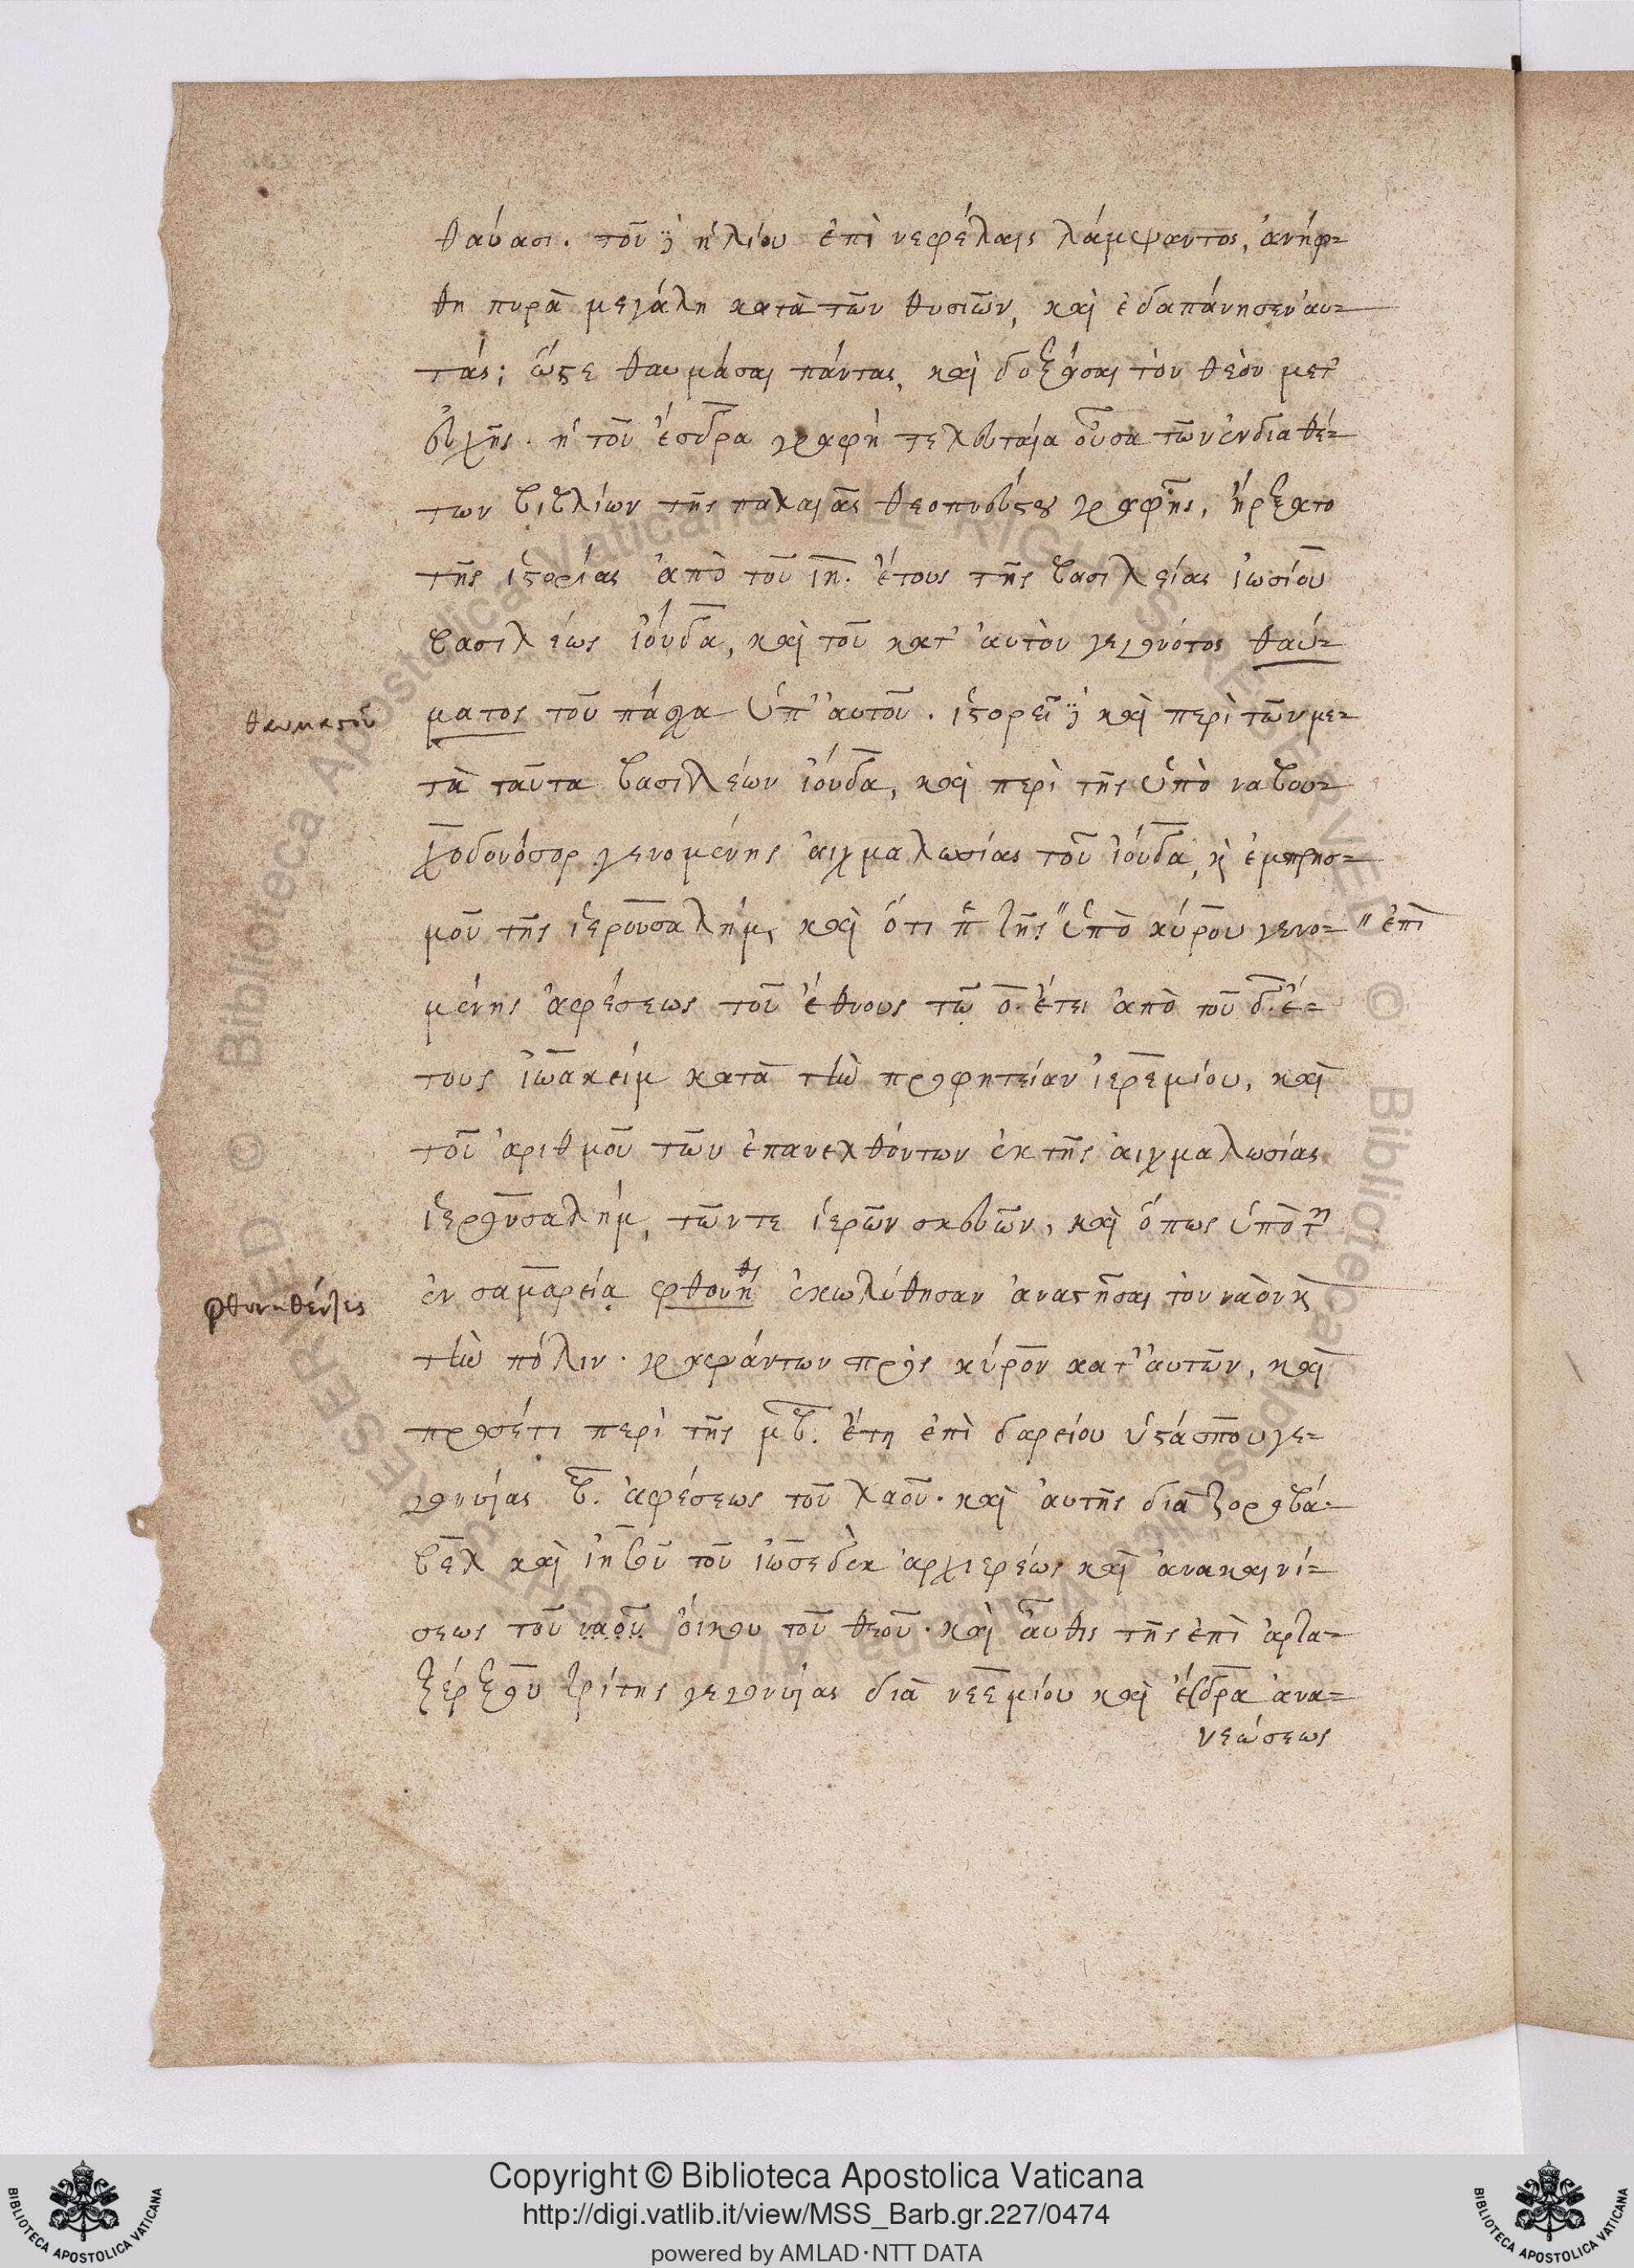 θαύασι. τοῦ δὲ ἡλίου ἐπὶ νεφέλαις λάμψαντος, ἀνήφ-
θη πυρὰ μεγάλη κατὰ τῶν θυσιῶν, καὶ ἐδαπάνησεν αυ-
τάς; ὥστε θαυμάσαι πάντας, καὶ δοξάσαι τὸν θεὸν μετ'
εὐχῆς. ἡ τοῦ ἔσδρα γραφὴ τελευταία οὖσα τῶν ἐνδιαθέ-
των βιβλίων τῆς παλαιᾶς θεοπνεύστου γραφῆς, ἤρξατο
τῆς ἱστορίας ἀπὸ τοῦ ιη. ἔτους τῆς βασιλείας ἰωσίου
βασιλέως ἰούδα, καὶ τοῦ κατ' αὐτὸν γεγονότος θαύ-
θαυμαστοῦ
ματος τοῦ πάσχα ὑπ' αυτοῦ. ἱστορεῖ δὲ καὶ περὶ τῶν με-
τὰ ταῦτα βασιλέων ἰούδα, καὶ περὶ τῆς ὑπὸ ναβου-
χοδονόσορ γενομένης αἰχμαλωσίας τοῦ ἰούδα, κὶ ἐμπρησ-
μοῦ τῆς ἱερουσαλήμ, καὶ ὅτι π τῆς " ὑπὸ κύρου γενο- " ἐπὶ
μένης ἀφέσεως τοῦ ἔθνους τῷ ο. ἔτει ἀπὸ τοῦ δ. ἔ-
τους ἰωακείμ κατὰ τὴν προφητείαν ἰερεμίου, καὶ
τοῦ ἀριθμοῦ τῶν ἐπανελθόντων ἐκ τῆς αἰχμαλωσίας
ἱερουσαλήμ, τῶν τε ἱερῶν σκευῶν, καὶ ὅπως ὑπὸ τῶν
φθονηθέντες
ἐν σαμαρείᾳ φθονηθ ἐκωλύθησαν ἀναστῆσαι τὸν ναὸν κὶ
τὴν πόλιν. γραψάντων πρὸς κύρον κατ' αυτῶν, καὶ
προσέτι περὶ τῆς μβ. ἔτη ἐπὶ δαρείου ὑστάσπου γε-
γονυίας β. ἀφέσεως τοῦ λαοῦ. καὶ αὐτῆς διὰ ζοροβά-
βελ καὶ ἰησοῦ τοῦ ἰωσεδὲκ ἀρχιερέως καὶ ἀνακαινί-
σεως τοῦ ναοῦ οἴκου τοῦ θεοῦ. καὶ αὖθις τῆς ἐπὶ ἀρτα-
ξέρξου τρίτης γεγονυίας διὰ νεεμίου καὶ ἔσδρα ἀνα-
νεώσεως
Copyright © Biblioteca Apostolica Vaticana
http://digi.vatlib.it/view/MSS_Barb.gr.227/0474
powered by AMLAD·NTT DATA